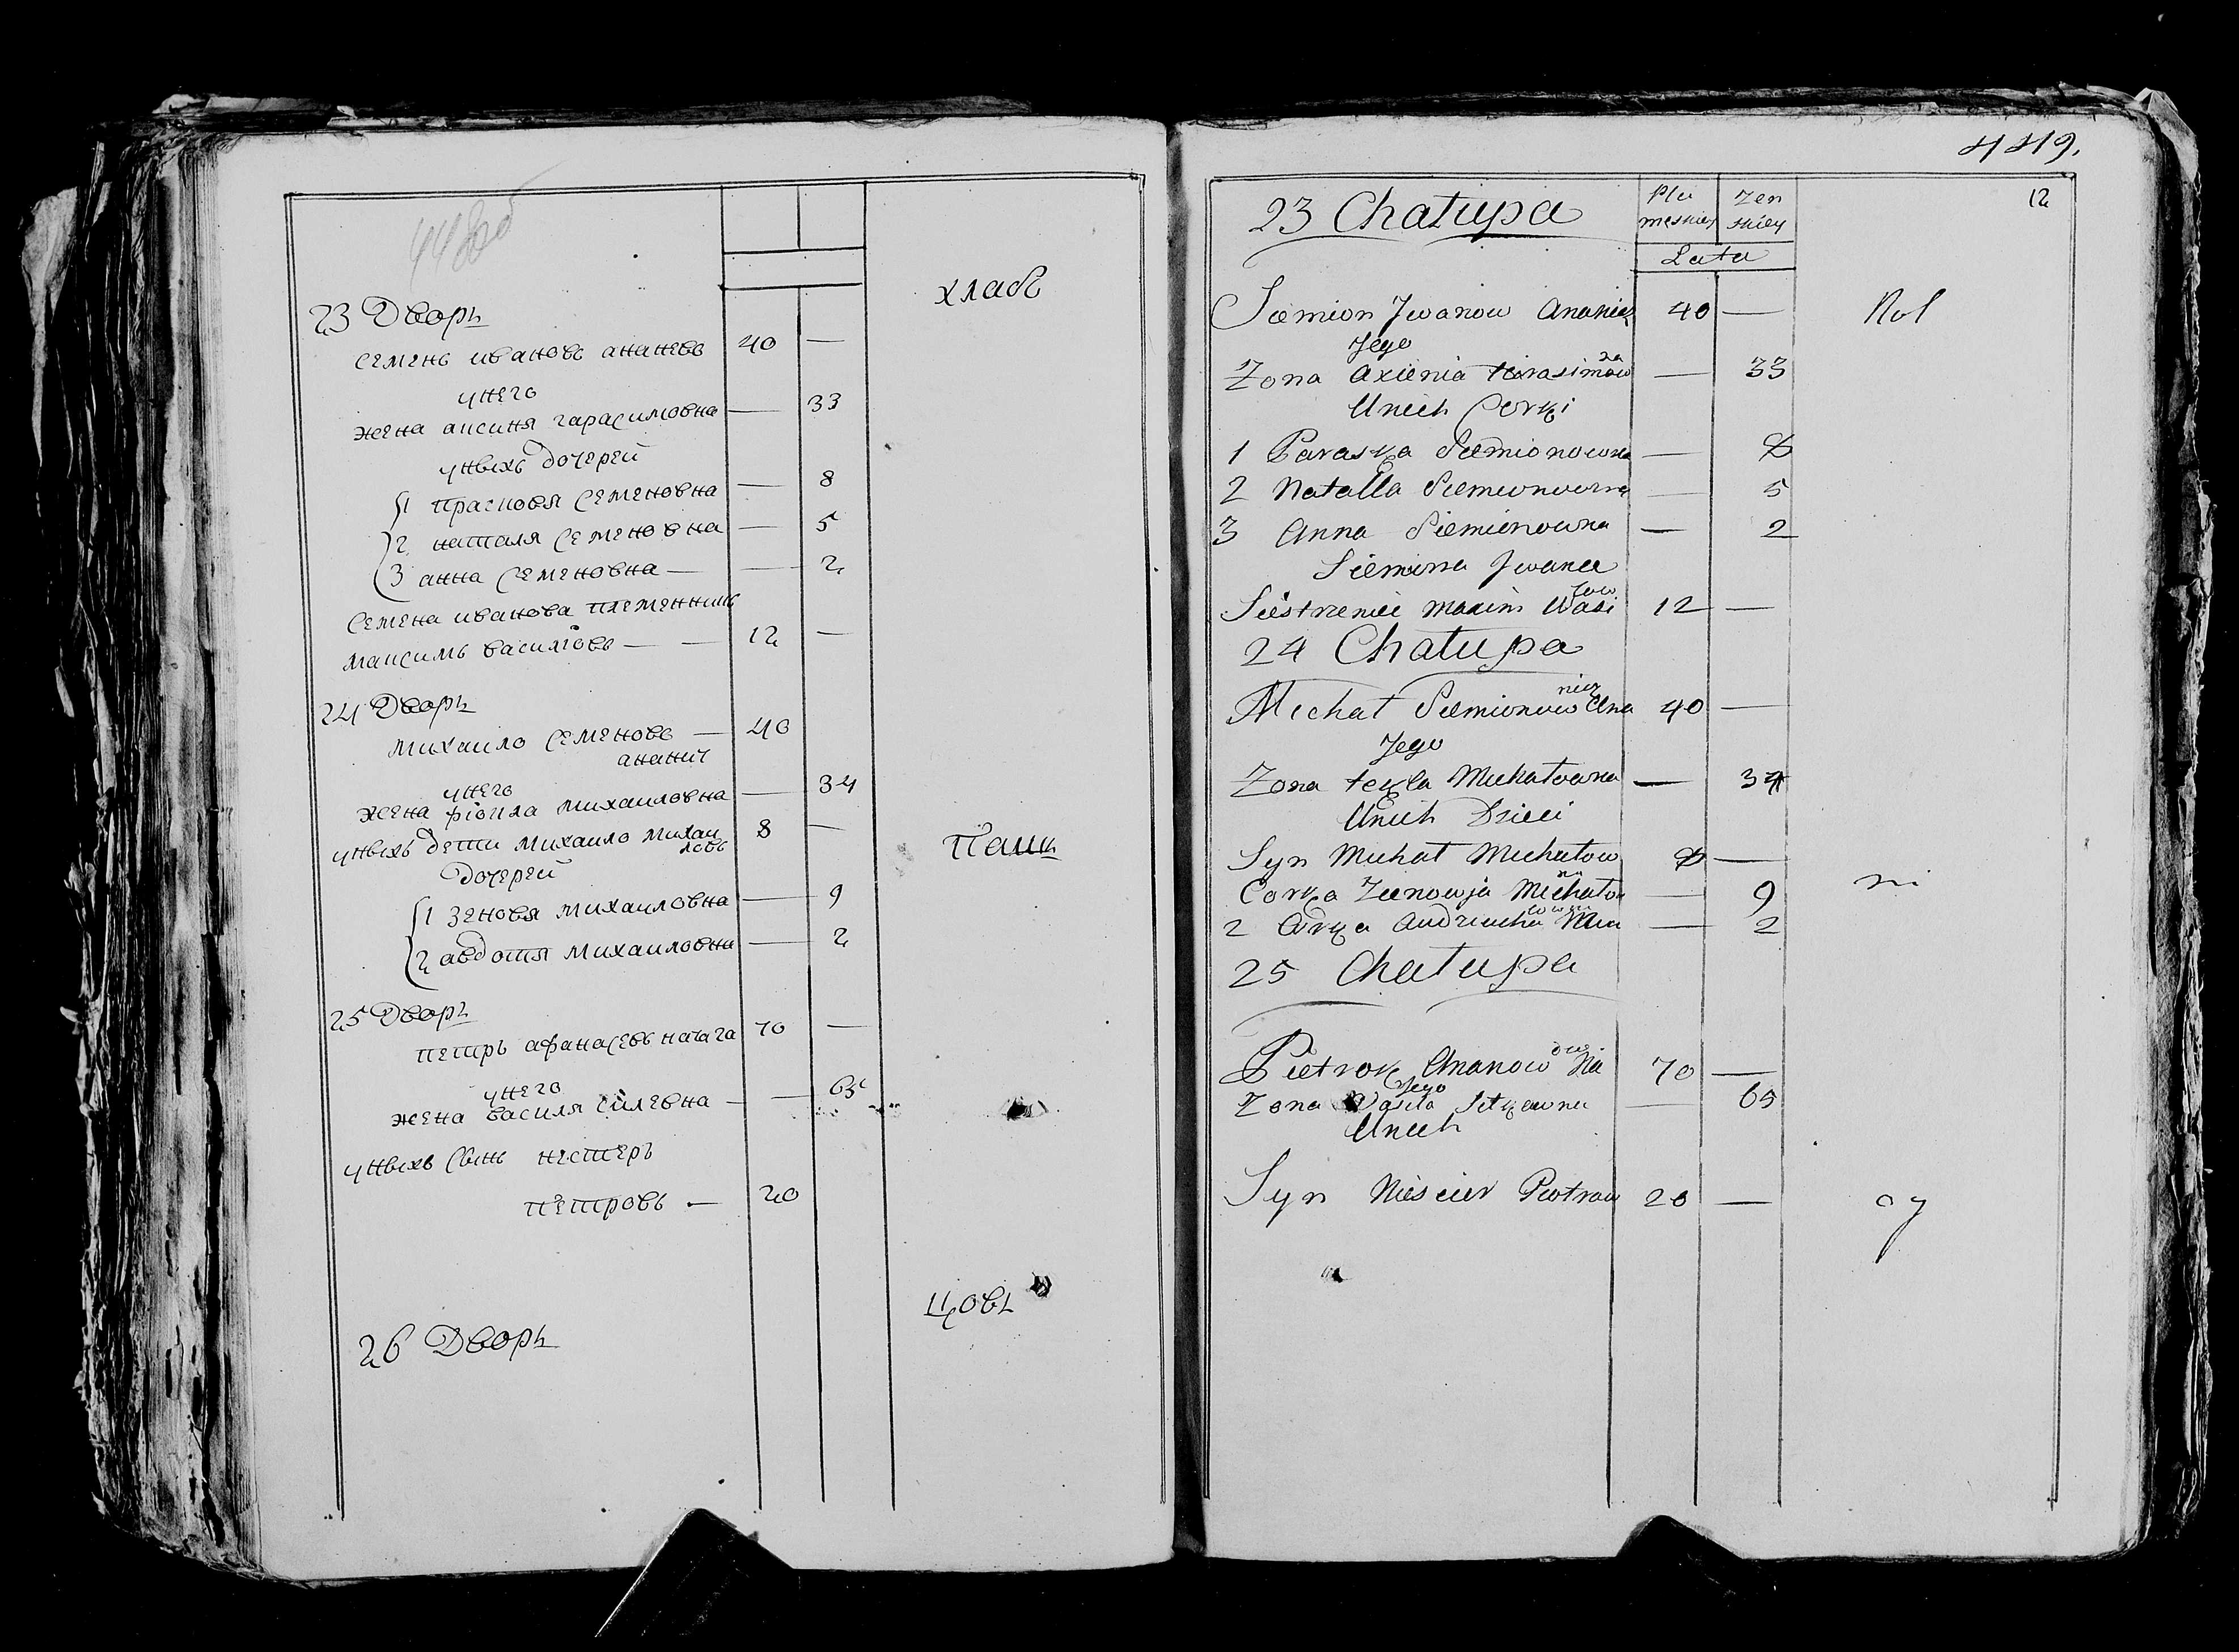 23 Дворъ
хлаб
семенъ ивановъ ананевъ 40 —
унего
жена аксиня гарасимовна — 33
унихъ дочерей
1 прасковя семеновна — 8
2 наталя семеновна — 5
3 анна семеновна — — 2
семена иванова племенникъ
максимъ василювъ — — 12 —
24 Дворъ
михаило семеновъ — 40
ананич
унего
жена фіокла михаиловна — 34
унихъ дети михаило михаи 8 —
ловъ
пашъ
дочерей
1 зеновя михаиловна — 9
2 авдотя михаиловна — 2
25 Дворъ
петръ афанасевъ 70 —
унего
жена василя силевна — — 65
унихъ сынъ нестеръ
петровъ — 20
цовъ
26 Дворъ
449.
12
23 Chałupa
Płci męskiey
Zen skiey
Lata
Siemion Jwanow Ananicz 40 — Rol
Jego
na
Zona Axienia Harasimow — 33
Unich Corki
1 Paraska Siemionowna — 8
2 Natalla Siemionowna — 5
3 Anna Siemionowna — 2
Siemiona Jwana
low
Siestrzeniec Maxim Wasi 12 —
24 Chałupa
nicz
Michał Siemionow Ana 40 —
Jego
Zona tekla Michałowna — 34
Unich Dzieci
Syn Michał Michałow 8 —
na
Corka Zienowja Michałow — 9
ni
2 Corka — 2
25 Chałupa
Pietrok Ananow 70 —
Jego
Zona Wasila — 65
Unich
Syn Niescier Piotrow 20 — cy